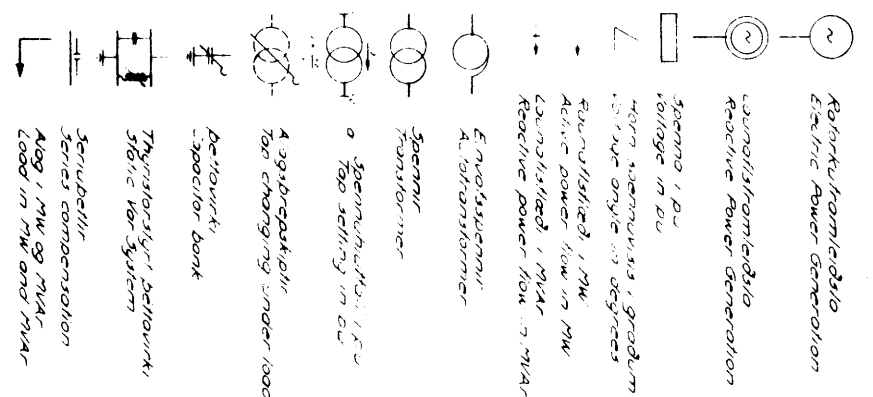 Raforkuframleiðsla
Electric Power Generation
Launaflsframleiðsla
Reactive Power Generation
Spenna i pu
Voltage in pu
Horn spennuvisis i gráðum
Voltage angle in degrees
Raunaflsflæði i MW
Active power flow in MW
Launaflsflæði i MVAr
Reactive power flow in MVAr
Einvafsspennir
Autotransformer
Spennir
Transformer
a Spennuhlutfall i pu
Tap setting in pu
Álagsþrepskiptir
Tap changing under load
Þéttavirki
Capacitor bank
Thyristorstýrt þéttavirki
Static Var System
Seriuþéttir
Series compensation
Álag i MW og MVAr
Load in MW and MVAr